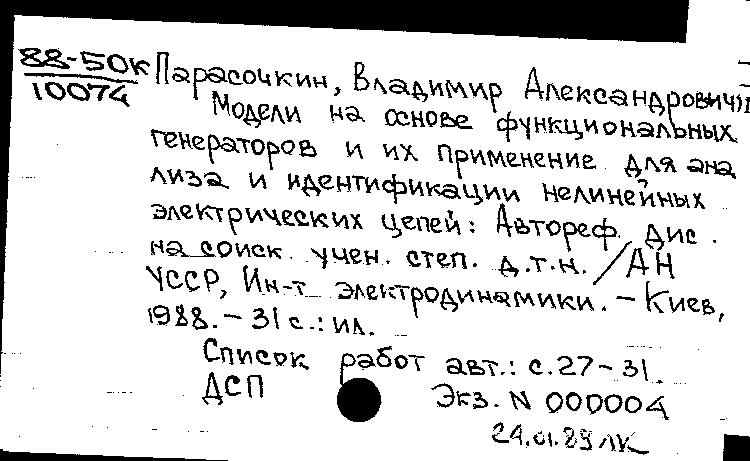 88-50к
10074
Парасочкин, Владимир Александрович
Модели на основе функциональных
генераторов и их применение для ана
лиза и идентификации нелинейных
электрических цепей: Автореф. Дис.
на соиск. учен. степ. д.т.н. / АН
УССР, Ин-т электродинамики. – Киев,
1988. – 31 с.: ил.
Список работ авт.: с. 27-31.
ДСП
Экз. N 000004
24.01.89 ЛК